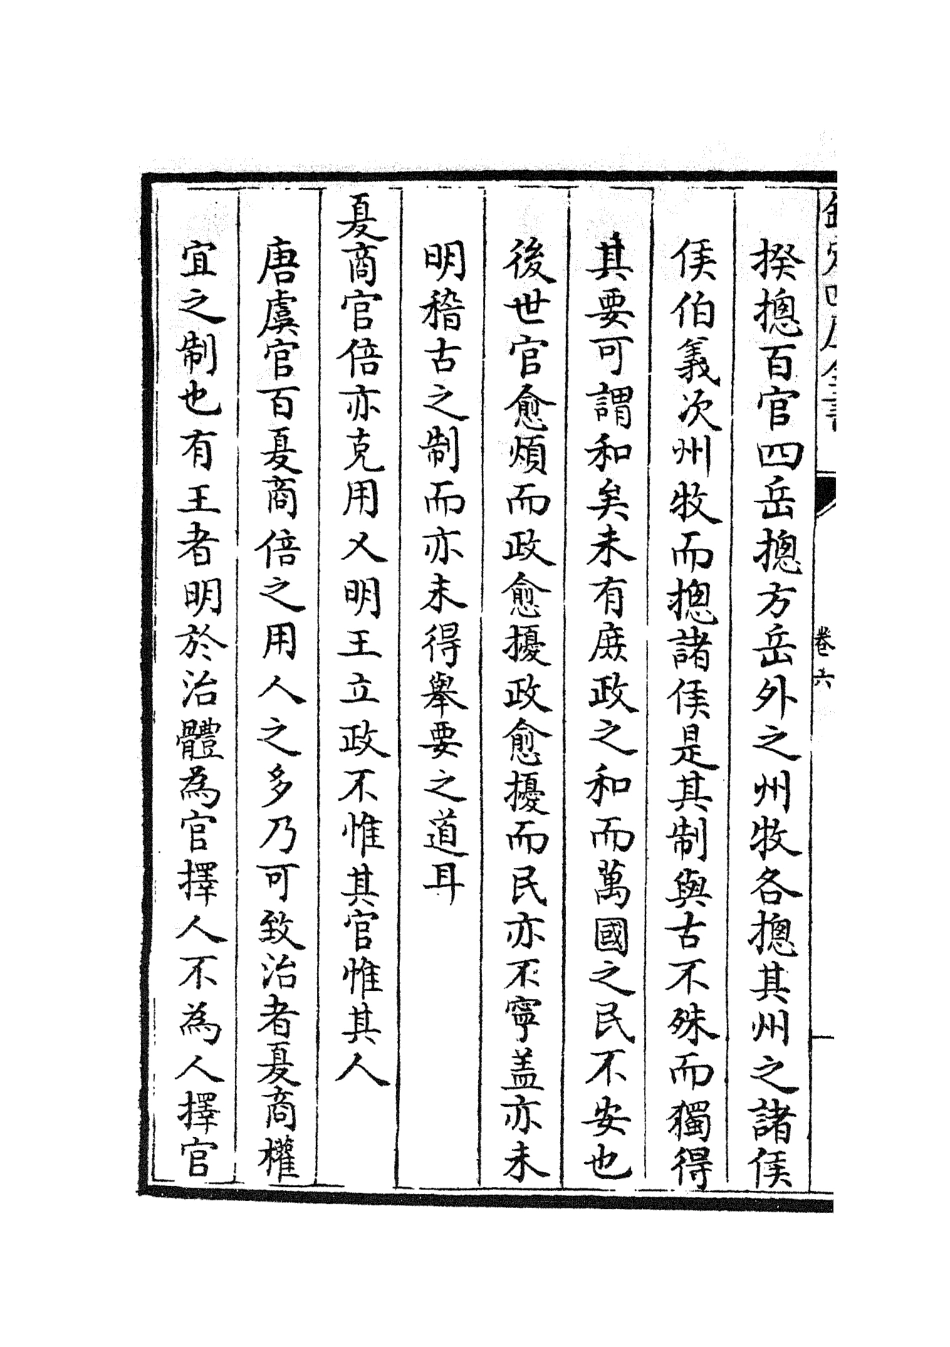 欽定四庫全書
卷六
揆摠百官四岳摠方岳外之州牧各摠其州之諸侯
侯伯義次州牧而摠諸侯是其制與古不殊而獨得
其要可謂和矣未有庶政之和而萬國之民不安也
後世官愈煩而政愈擾政愈擾而民亦不寧盖亦未
明稽古之制而亦未得舉要之道耳
夏商官倍亦克用乂明王立政不惟其官惟其人
唐虞官百夏商倍之用人之多乃可致治者夏商權
宜之制也有王者明於治體為官擇人不為人擇官